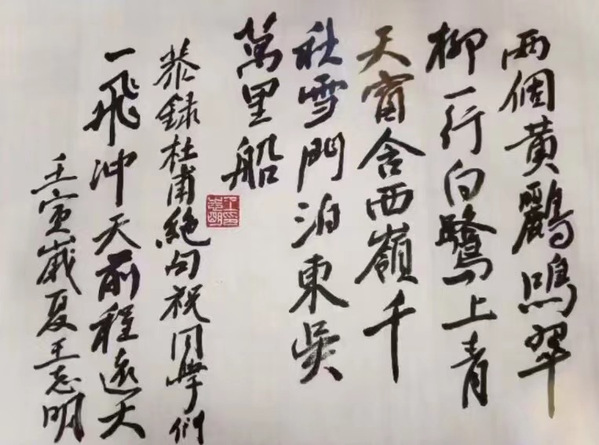 兩個黃鸝鳴翠
柳一行白鷺上青
天窗含西嶺千
秋雪門泊東吳
萬里船
恭録杜甫絕句祝同學們
一飛冲天前程遠大
壬寅歲夏王志明